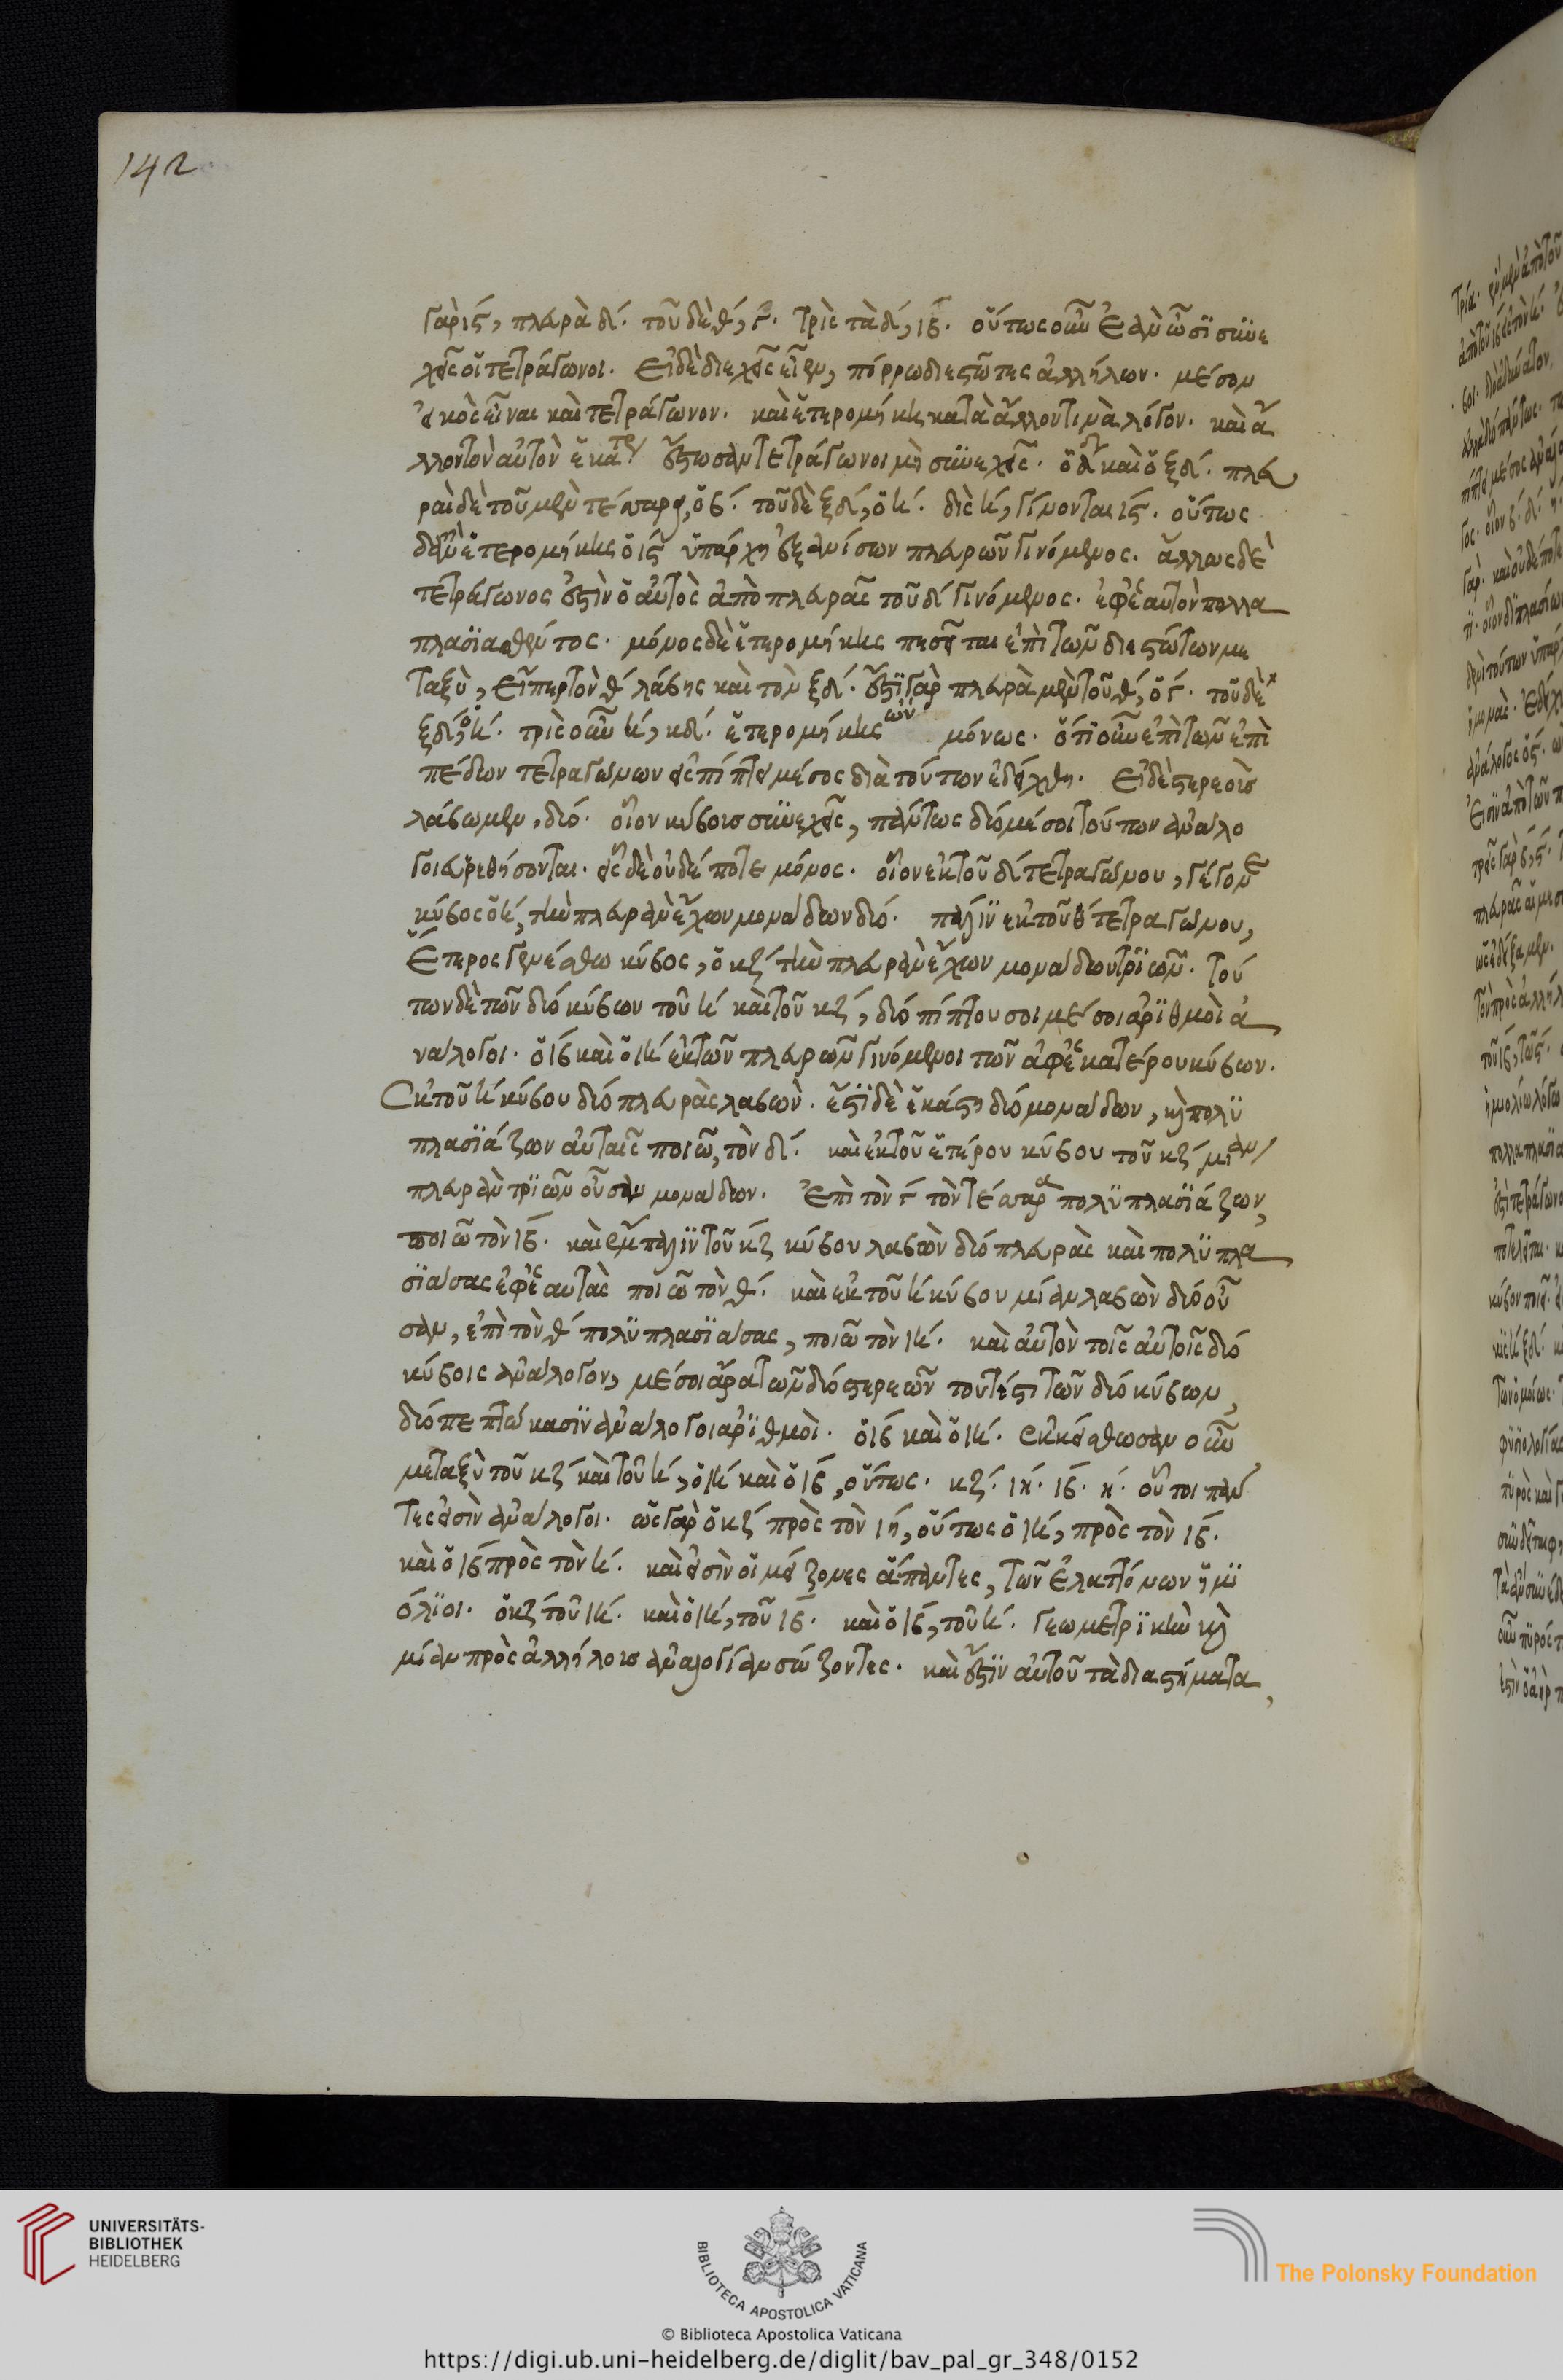 142
γὰρ ις, πλευρὰ δ. τοῦ δὲ θ, γ. τρὶς τὰ δ, ιβ. οὕτως οὖν ἐὰν ὦσι συνε
χεῖς οἱ τετράγωνοι. εἰ δὲ διεχεῖς εἶεν, πόρρω διεστῶτες ἀλλήλων. μέσον
εἰκὸς εἶναι καὶ τετράγωνον. καὶ ἑτερομήκης κατὰ ἄλλον τινὰ λόγον. καὶ ἄ
λλον τὸν αὐτὸν ἔστωσαν τετράγωνοι μὴ συνεχεῖς. ὁ δ καὶ ὁ ξδ. πλευ
ραὶ δὲ τοῦ μὲν τέσσαρα, ὁ β. τοῦ δὲ ξδ, ὁ η. δὶς η, γίνονται ις. οὕτως
δὲ ἑτερομήκης ὁ ις ὑπάρχῃ ἐξ ἀνίσων πλευρῶν γινόμενος. ἄλλως δὲ
τετράγωνος ἐστὶν ὁ αὐτὸς ἀπὸ πλευρᾶς τοῦ δ γινόμενος. ἐφ' ἑαυτὸν πολλα
πλασιασθέντος. μόνος δὲ ἑτερομήκης πεσεῖται ἐπὶ τῶν διεστώτων με
ταξὺ, εἴπερ τὸν θ λάβῃς καὶ τὸν ξδ. ἔστι γὰρ πλευρὰ μὲν τοῦ θ, ὁ γ. τοῦ δὲ
ξδ, ὁ η. τρὶς οὖν η, κδ. ἑτερομήκης ὢν μόνως. ὅτι οὖν ἐπὶ τῶν ἐπι
πέδων τετραγώνων εἷς πίπτει μέσος διὰ τούτων ἐδείχθη. εἰ δὲ στερεοὺς
λάβωμεν, δύο. οἷον κύβοις συνεχεῖς, πάντως δύο μέσοι τούτων ἀνάλο
γοι εὑρεθήσονται. εἷς δὲ οὐδέποτε μόνος. οἷον ἐκ τοῦ δ τετραγώνου, γέγονε
κύβος ὁ η, τὴν πλευρὰν ἔχων μονάδων δύο. πάλιν ἐκ τοῦ θ τετραγώνου,
ἕτερος γενέσθω κύβος, ὁ κζ τὴν πλευρὰν ἔχων μονάδων τριῶν. τού
των δὲ τῶν δύο κύβων τοῦ η καὶ τοῦ κζ, δύο πίπτουσοι μέσοι ἀριθμοὶ ἀ
νάλογοι. ὁ ιβ καὶ ὁ ιη ἐκ τῶν πλευρῶν γινόμενοι τῶν ἀφ' ἑκατέρου κύβων.
Ἐκ τοῦ η κύβου δύο πλευρὰς λαβὼν. ἔστι δὲ ἑκάστη δύο μονάδων, καὶ πολυ
πλασιάζων αὐταῖς ποιῶ, τὸν δ. καὶ ἐκ τοῦ ἑτέρου κύβου τοῦ κζ μίαν
πλευρὰν τριῶν οὖσαν μονάδων. ἐπὶ τὸν γ τὸν τέσσαρα πολυπλασιάζων,
ποιῶ τὸν ιβ. καὶ ἔμπαλιν τοῦ κζ κύβου λαβὼν δύο πλευρὰς καὶ πολυπλα
σιάσας ἐφ' ἑαυτὰς ποιῶ τὸν θ. καὶ ἐκ τοῦ η κύβου μίαν λαβὼν δύο οὖ
σαν, ἐπὶ τὸν θ πολυπλασιάσας, ποιῶ τὸν ιη. καὶ αὐτὸν τοῖς αὐτοῖς δύο
κύβοις ἀνάλογον, μέσοι ἄρα τῶν δύο στερεῶν τουτέστι τῶν δύο κύβων,
δύο πεπτώκασιν ἀνάλογοι ἀριθμοὶ. ὁ ιβ καὶ ὁ ιη. ἐκκείσθωσαν οὖν
μεταξὺ τοῦ κζ καὶ τοῦ η, ὁ ιη καὶ ὁ ιβ, οὕτως. κζ. ιη. ιβ. η. οὗτοι πάν
τες εἰσὶν ἀνάλογοι. ὡς γὰρ ὁ κζ πρὸς τὸν ιη, οὕτως ὁ ιη, πρὸς τὸν ιβ.
καὶ ὁ ιβ πρὸς τὸν η. καὶ εἰσὶν οἱ μείζονες ἅπαντες, τῶν ἐλαττόνων ἡμι
όλιοι. ὁ κζ τοῦ ιη. καὶ ὁ ιη, τοῦ ιβ. καὶ ὁ ιβ, τοῦ η. γεωμετρικὴν καὶ
μίαν πρὸς ἀλλήλοις ἀναλογίαν σώζοντες. καὶ ἔστιν αὐτοῦ τὰ διαστήματα,
UNIVERSITÄTS-
BIBLIOTHEK
HEIDELBERG
BIBLIOTECA APOSTOLICA VATICANA
The Polonsky Foundation
© Biblioteca Apostolica Vaticana
https://digi.ub.uni-heidelberg.de/diglit/bav_pal_gr_348/0152